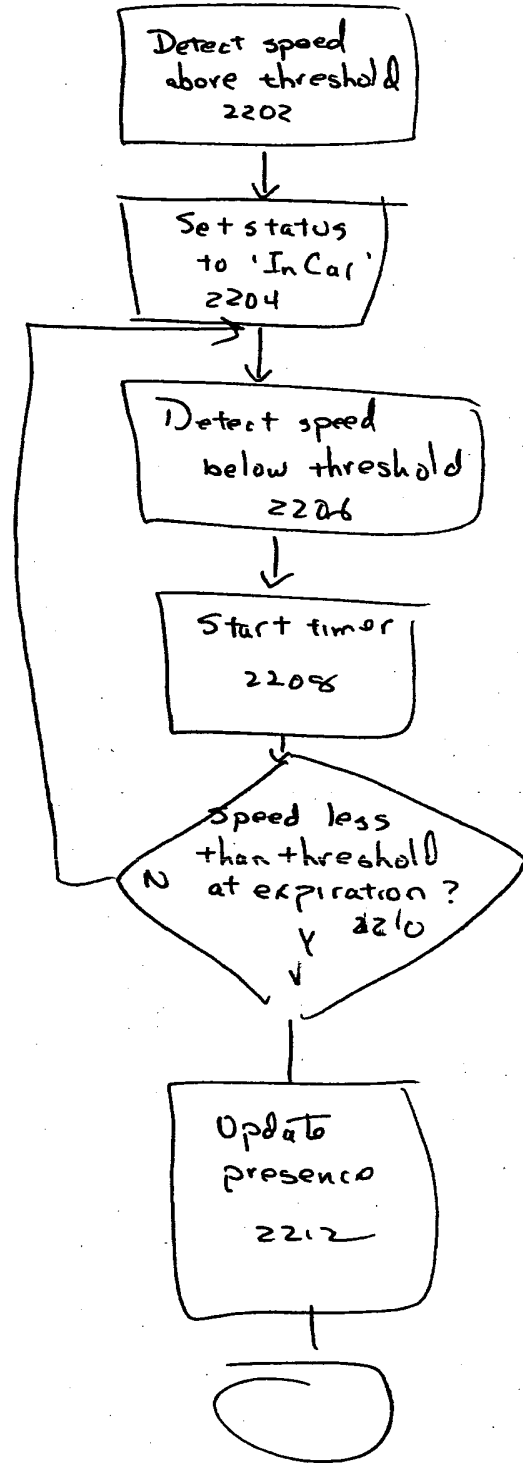 Detect speed
above threshold
2202
Set status
to 'InCar'
2204
Detect speed
below threshold
2206
Start timer
2208
Speed less
than threshold
N at expiration?
2210
Y
Update
presence
2212